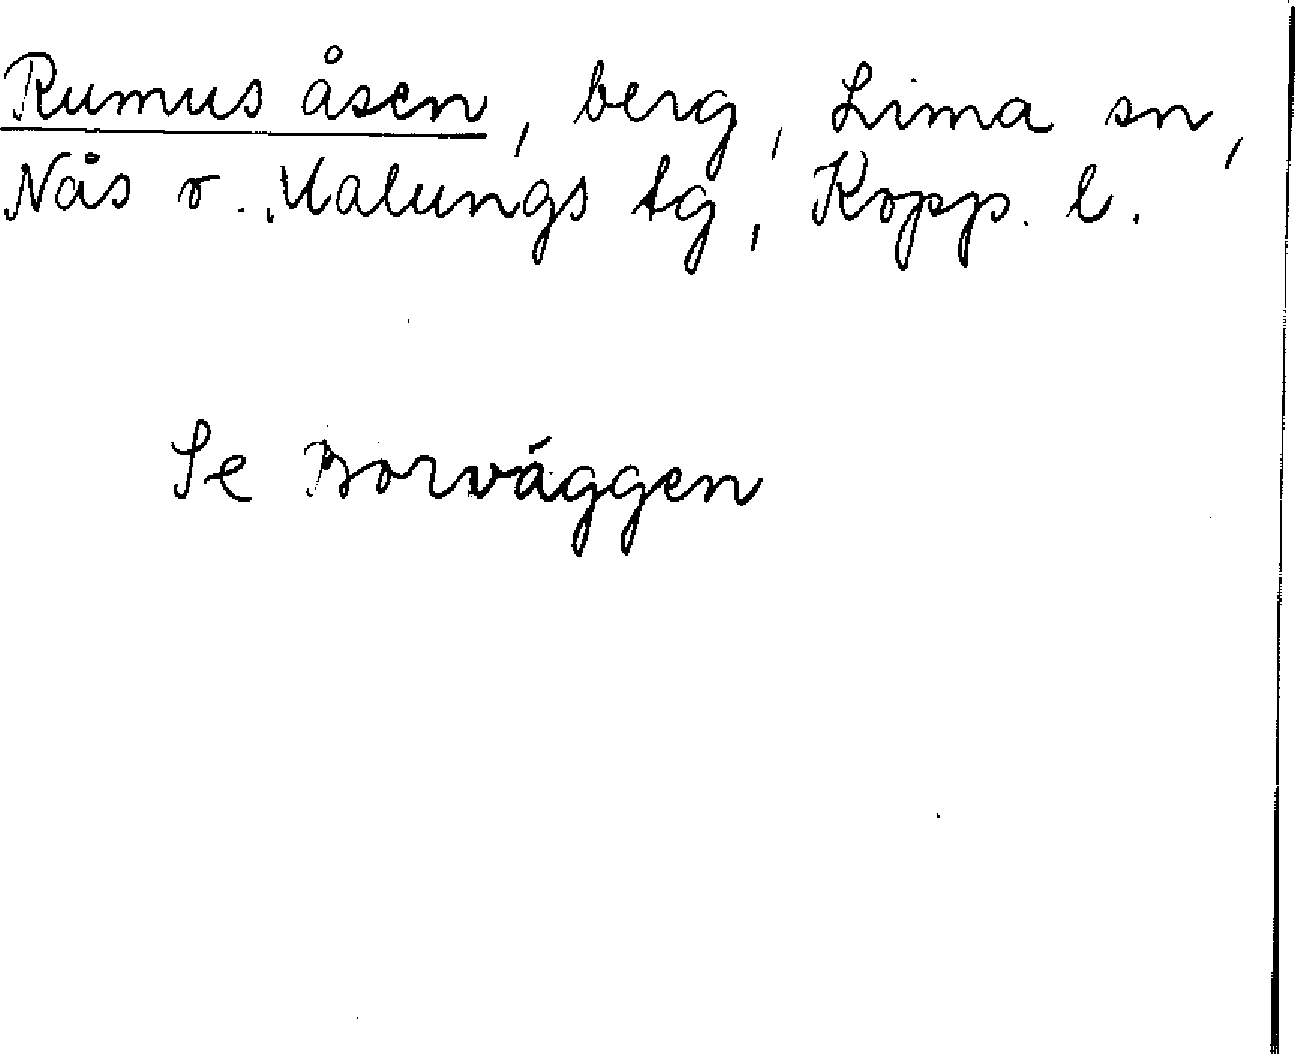 Rumus åsen, berg, Lima sn,
Nås o. Malungs tg, Kopp. l.
Se Borväggen